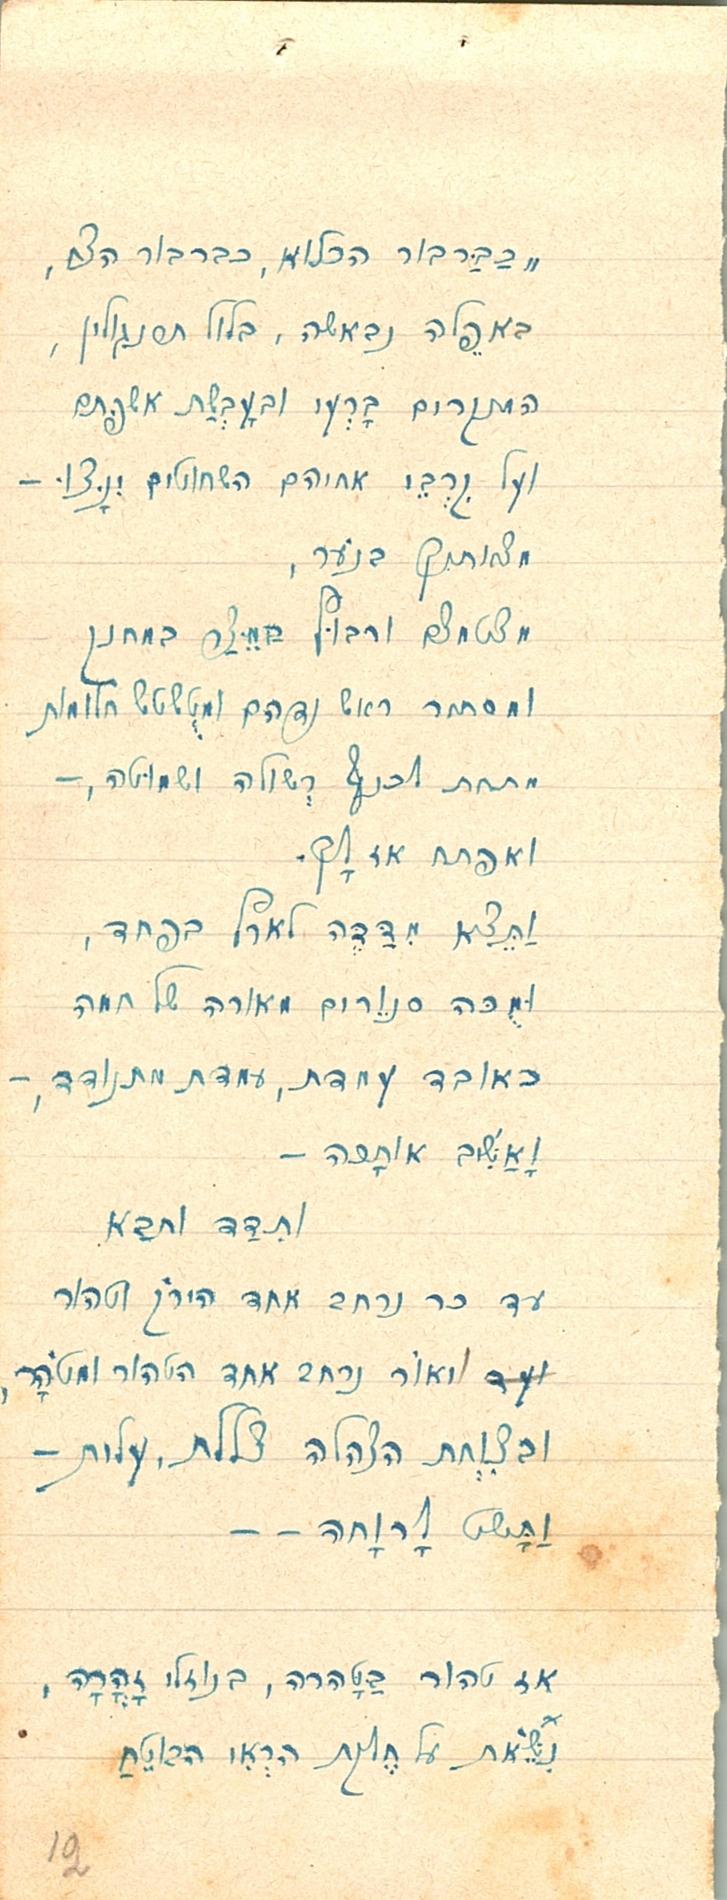 „כַּבַּרבור הכלוא, כברבור הצח,
באפֵלה נבאשה, בלול תפנגולין,
המתגרים בָּרְעִי ובעָבְשַׁת אשפתם
ועל גֵרְבֵּי אחיהם השחוטים יִנָּצוּ. –
מצותתק בנֹער,
מצטמצם ורבוץ בַּמֵּצַר במחנק
ומסתתר ראש נפהם ומְטשטש חלומות
מתחת לכנף רְשולה ושמוטה, –
ואפתח אז לָךְ.
וַתֵּצֵא מְדַדֶּה לארץ בפחד,
וּמֻכה סנוֵרים מאורה של חמה
כאובד עמדת, עמדת מתנודד, –
וָאַשִּׁיב אותָכה –
ותִדַּד ותבֹא
עד כר נרחב אחד הירֹק וטהור
ואור נרחב אחד הטהור ומטֹהָר,
ובצִוְחת הצהלה צללת, עלית –
וַתָּשט לָרְוָחה – –
אז טהור בַּטָּהרה, בנוזלי זָהֳרָה,
נִשֵּׂאת על חֶלקת הרְאִי הבוטֵחַ
12